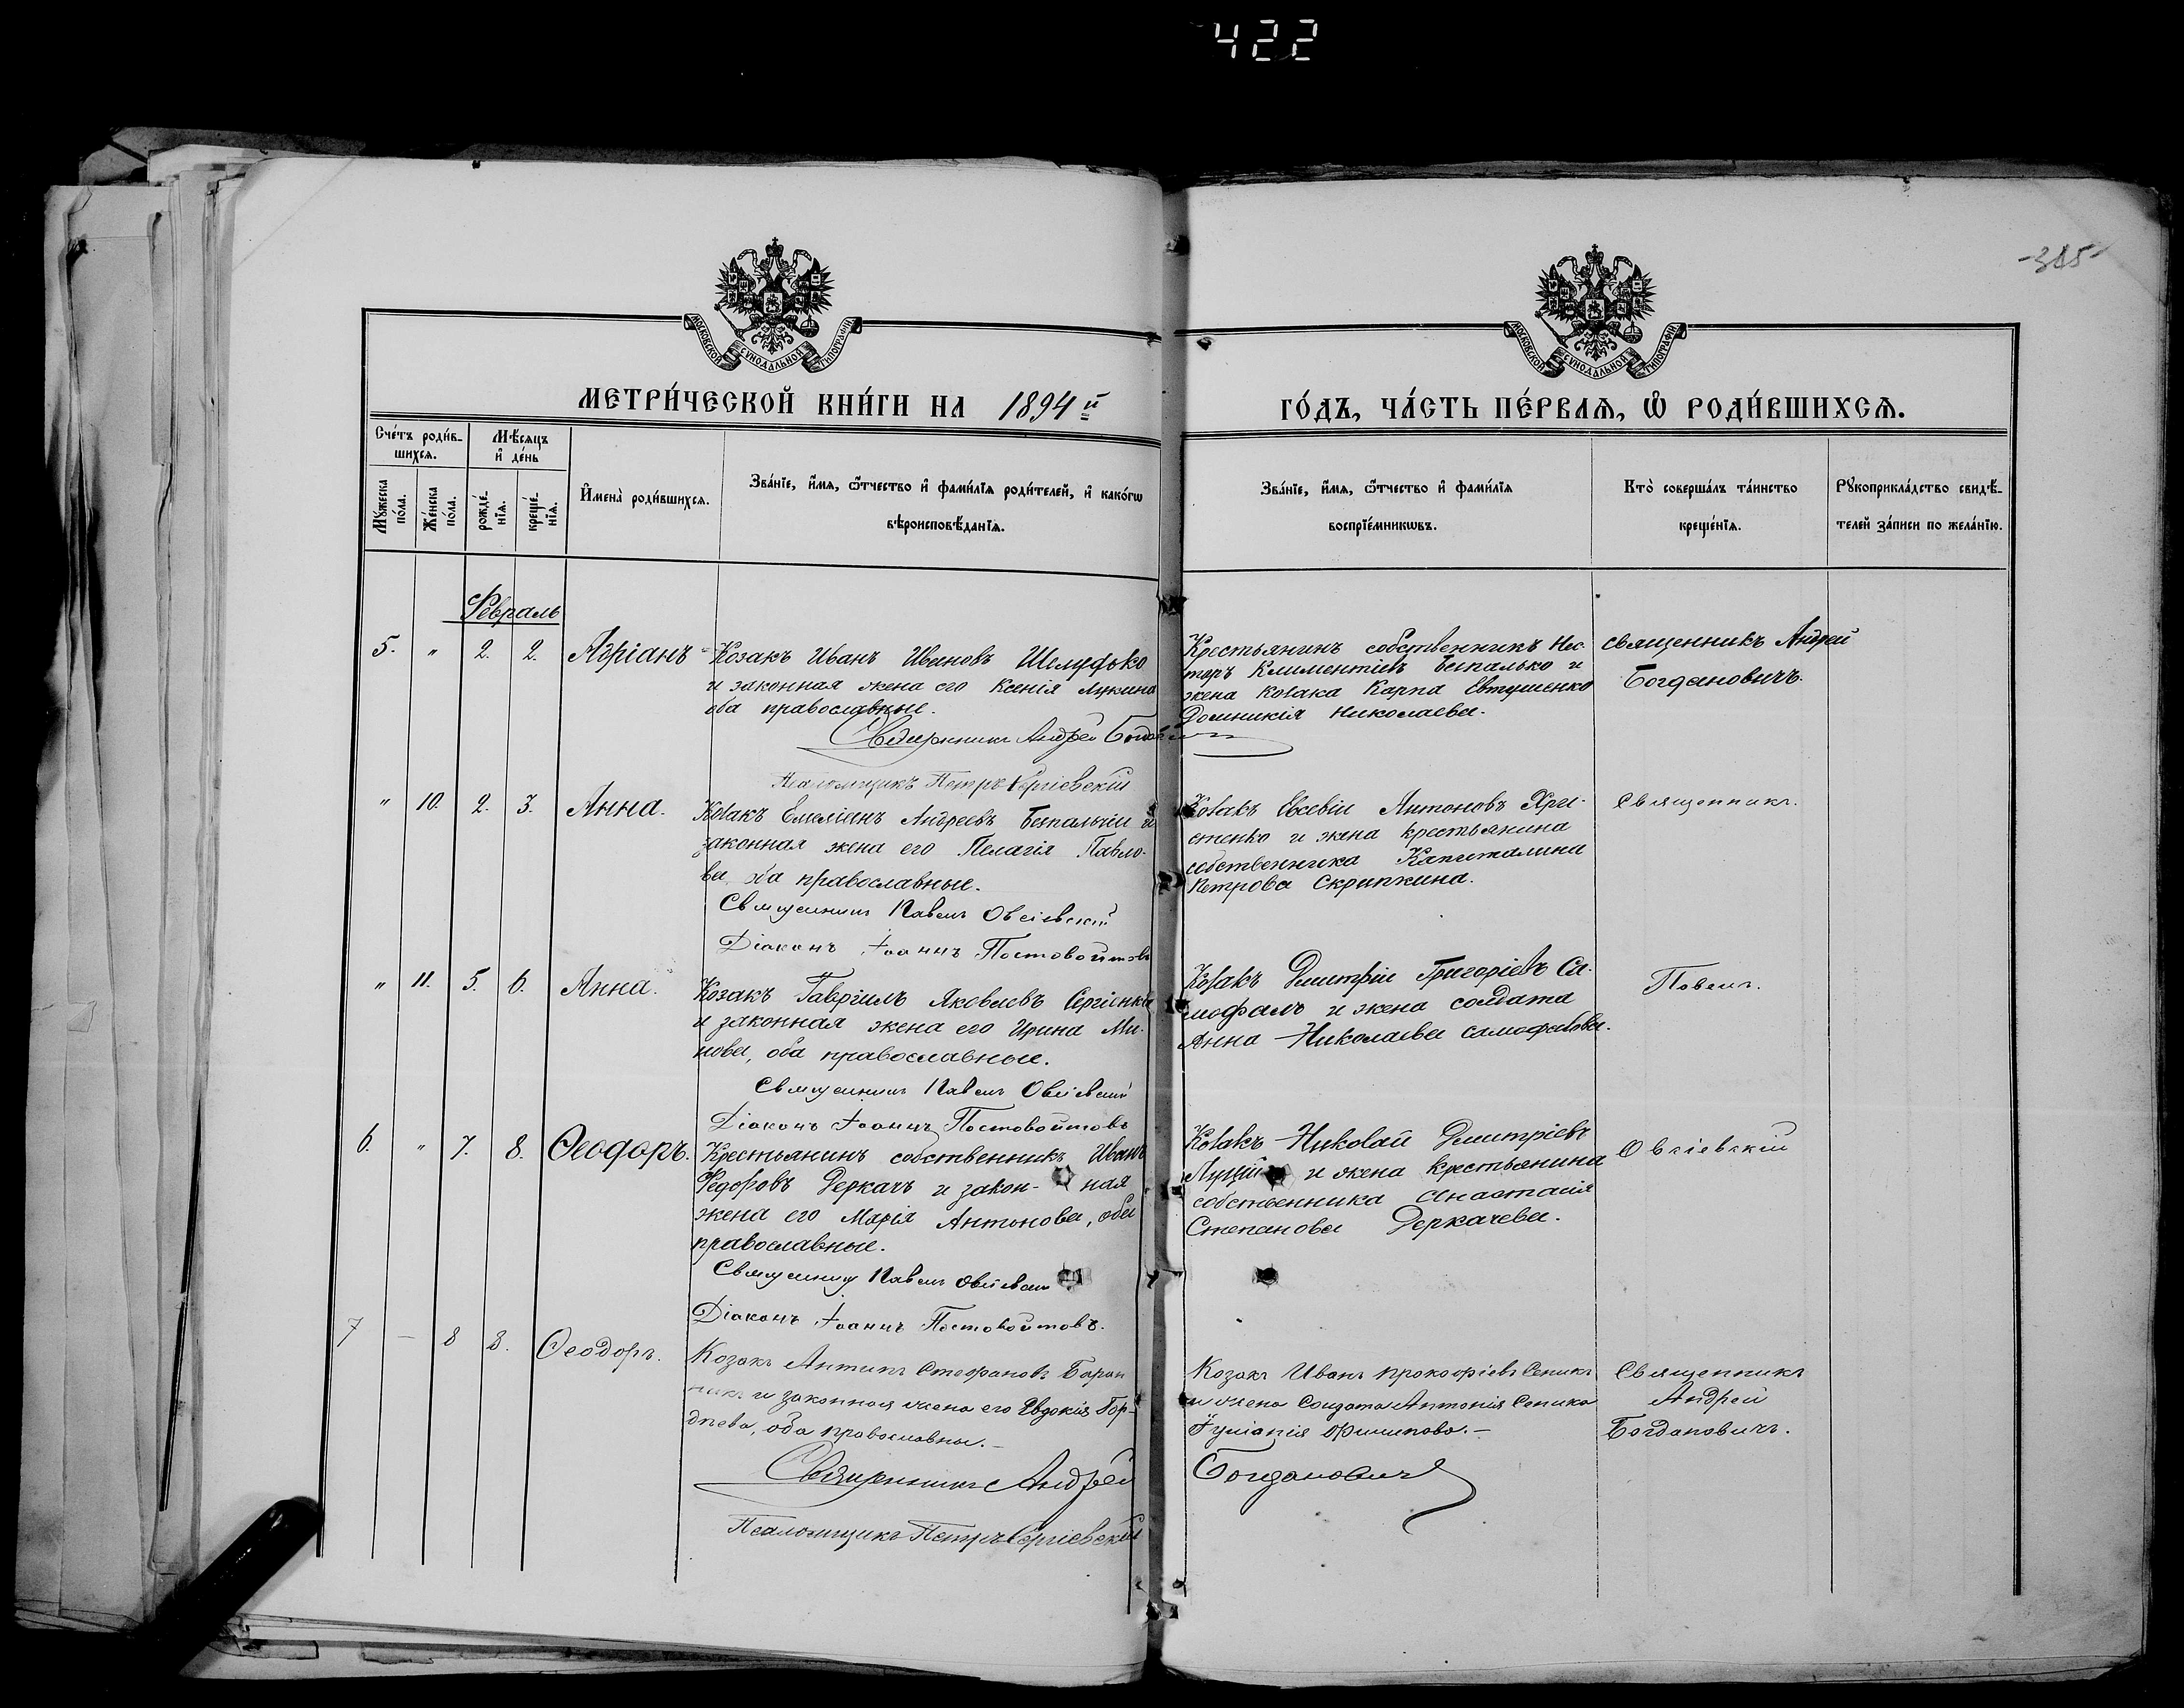 422
-315-
МОСКОВСКОЙ СУНОДАЛЬНОЙ ТИПОГРАФІИ
МОСКОВСКОЙ СУНОДАЛЬНОЙ ТИПОГРАФІИ
МЕТРИ́ЧЕСКОЙ КНИ́ГИ НА 1894й
ГО́ДЪ, ЧА́СТЬ ПЕ́РВАѦ, Ѡ РОДИ́ВШИХСѦ.
Сче́тъ роди́в-
шихсѧ.
Мѣ́сѧцъ
и҆ де́нь
Мꙋ́жеска
по́ла.
Же́нска
по́ла.
рожде́-
нїѧ.
креще́-
нїѧ.
И҆мена̀ роди́вшихсѧ.
Зва́нїе, и҆́мѧ, ѻ҆́тчество и҆ фами́лїѧ роди́телей, и҆ како́гѡ
вѣроисповѣ́данїѧ.
Зва́нїе, и҆́мѧ, ѻ҆́тчество и҆ фами́лїѧ
воспрїе́мникѡвъ.
Кто̀ соверша́лъ та́инство
креще́нїѧ.
Рꙋкоприкла́дство свидѣ́-
телей за́писи по жела́нїю.
Февраль
5. " 2. 2. Адріанъ
Козакъ Иванъ Ивановъ
и законная жена его Ксенія Лукина
оба православные.
Священникъ Андрей
Псаломщикъ Петръ Сергіевскій
Крестьянинъ собственникъ Нес-
торъ Климентіевъ Безпалько и
жена козака Карпа Евтушенко
Домникія Николаева.
Священникъ Андрей
Богдановичъ.
" 10. 2. 3. Анна.
Козакъ Емеліанъ Андреевъ Безпальчій и
законная жена его Пелагія Павло-
ва, оба православные.
Священникъ Павелъ Овсіевскій
Діаконъ Іоаннъ Постовойтовъ
Козакъ Евсевій Антоновъ Хри-
стенко и жена крестьянина
собственника Капиталина
Петрова Скрипкина.
Священникъ.
" 11. 5. 6. Анна.
Козакъ Гавріилъ Яковлевъ Сергіенко
и законная жена его Ирина Ми-
нова, оба православные.
Священникъ Павелъ Овсіевскій
Діаконъ Іоаннъ Постовойтовъ
Козакъ Димитрій Григоріевъ Са-
мофалъ и жена солдата
Анна Николаева Самофалова.
Павелъ.
6. " 7. 8. Ѳеодоръ.
Крестьянинъ собственникъ Иванъ
Федоровъ Деркачъ и закон- ная
жена его Марія Антонова, оба
православные.
Священникъ Павелъ Овсіевскій
Діаконъ Іоаннъ Постовойтовъ.
Козакъ Николай Димитріевъ
и жена крестьянина
собственника Анастасія
Степанова Деркачева.
Овсіевскій
7 — 8 8. Ѳеодоръ.
Козакъ Антипъ Стефановъ Баран
никъ и законная жена его Евдокія Гор-
дѣева, оба православны.—
Священникъ Андрей Богдановичъ
Псаломщикъ Петръ Сергіевскій
Козакъ Иванъ Прокофіевъ Сепикъ
и жена солдата Антонія Сепика
Іуліанія Филипова.—
Священникъ
Андрей
Богдановичъ.